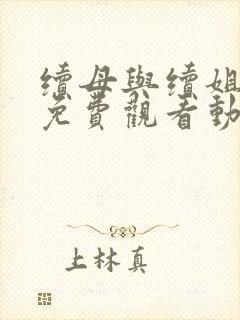 續母與續姐
免費觀看動
上林真